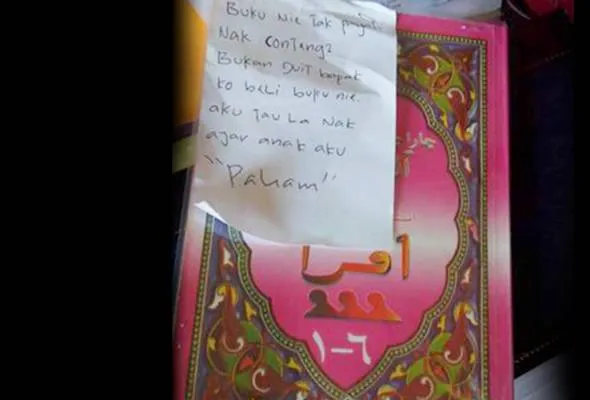 Buku nie tak payah
Nak conteng2
Bukan Duit bapak
ko beli buku nie.
aku Tau La Nak
ajar anak aku
"Paham"
اقرأ
٦-١